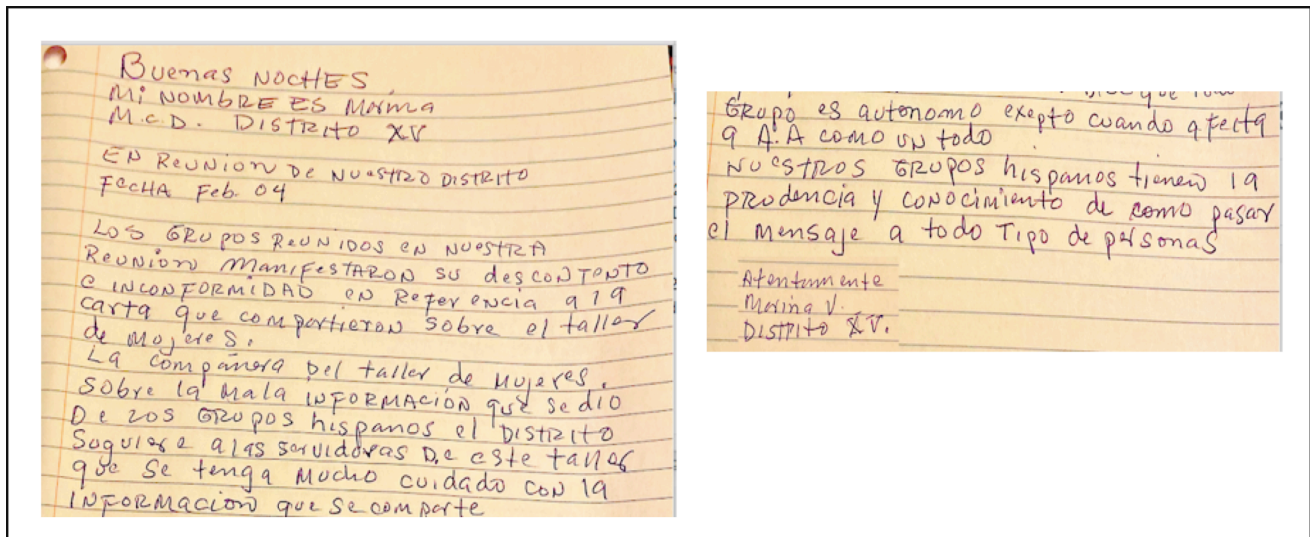 Buenas NOCHES
Mi NOMBRE ES Marina
M.C.D. DISTRITO XV
EN REUNION DE NUESTRO DISTRITO
FECHA Feb. 04
LOS GRUPOS REUNIDOS EN NUESTRA
REUNION MANIFESTARON SU desCONTONTO
e INCONFORMIDAD EN Referencia a la
carta que compartieron sobre el taller
de Mujeres.
La compañera Del taller de Mujeres.
Sobre la Mala INFORMACIÓN que se dio
De LOS GRUPOS hispanos el DISTRITO
Suguiere a las servidoras De este taller
que se tenga Mucho cuidado con la
INFORMACION que se comparte
GRUPO es autonomo exepto cuando afecta
a A.A como un todo
NUESTROS GRUPOS hispanos tienen la
prudencia y conocimiento de como pasar
el Mensaje a todo Tipo de personas
Atentamente
Marina V.
DISTRITO XV.